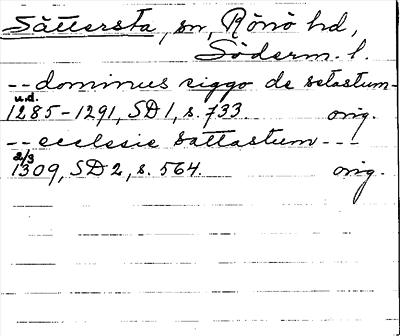 Sättersta, sn, Rönö hd,
Söderm. l.
-- dominus siggo de setastum-
u.d.
1285-1291, SD 1, s. 733. orig.
-- ecclesie sattastum ---
2/3
1309, SD 2, s. 564. orig.